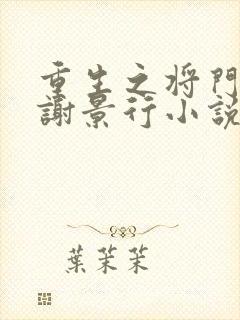 重生之将門
謝景行小説
葉茉茉